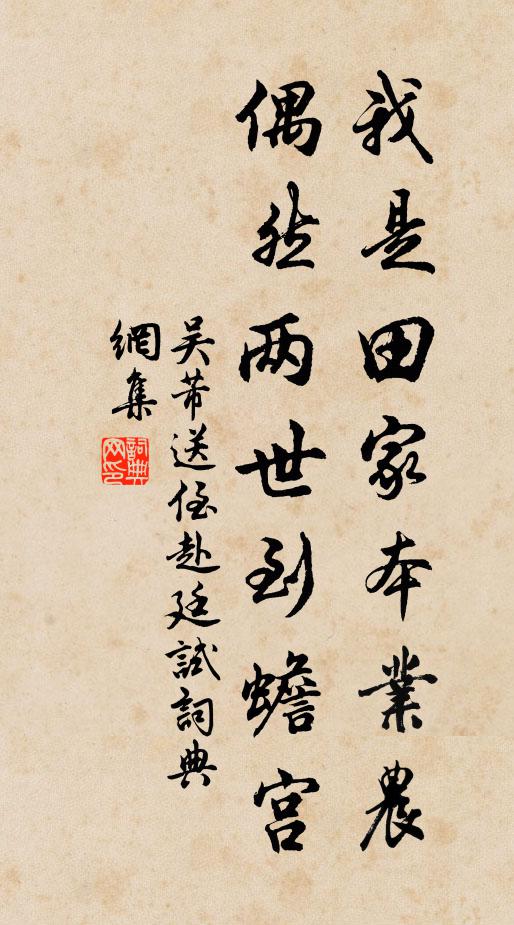 我是田家本業農
偶然两世到蟾宫
吴芾送侄赴廷試詞典
網集
詞典
网印